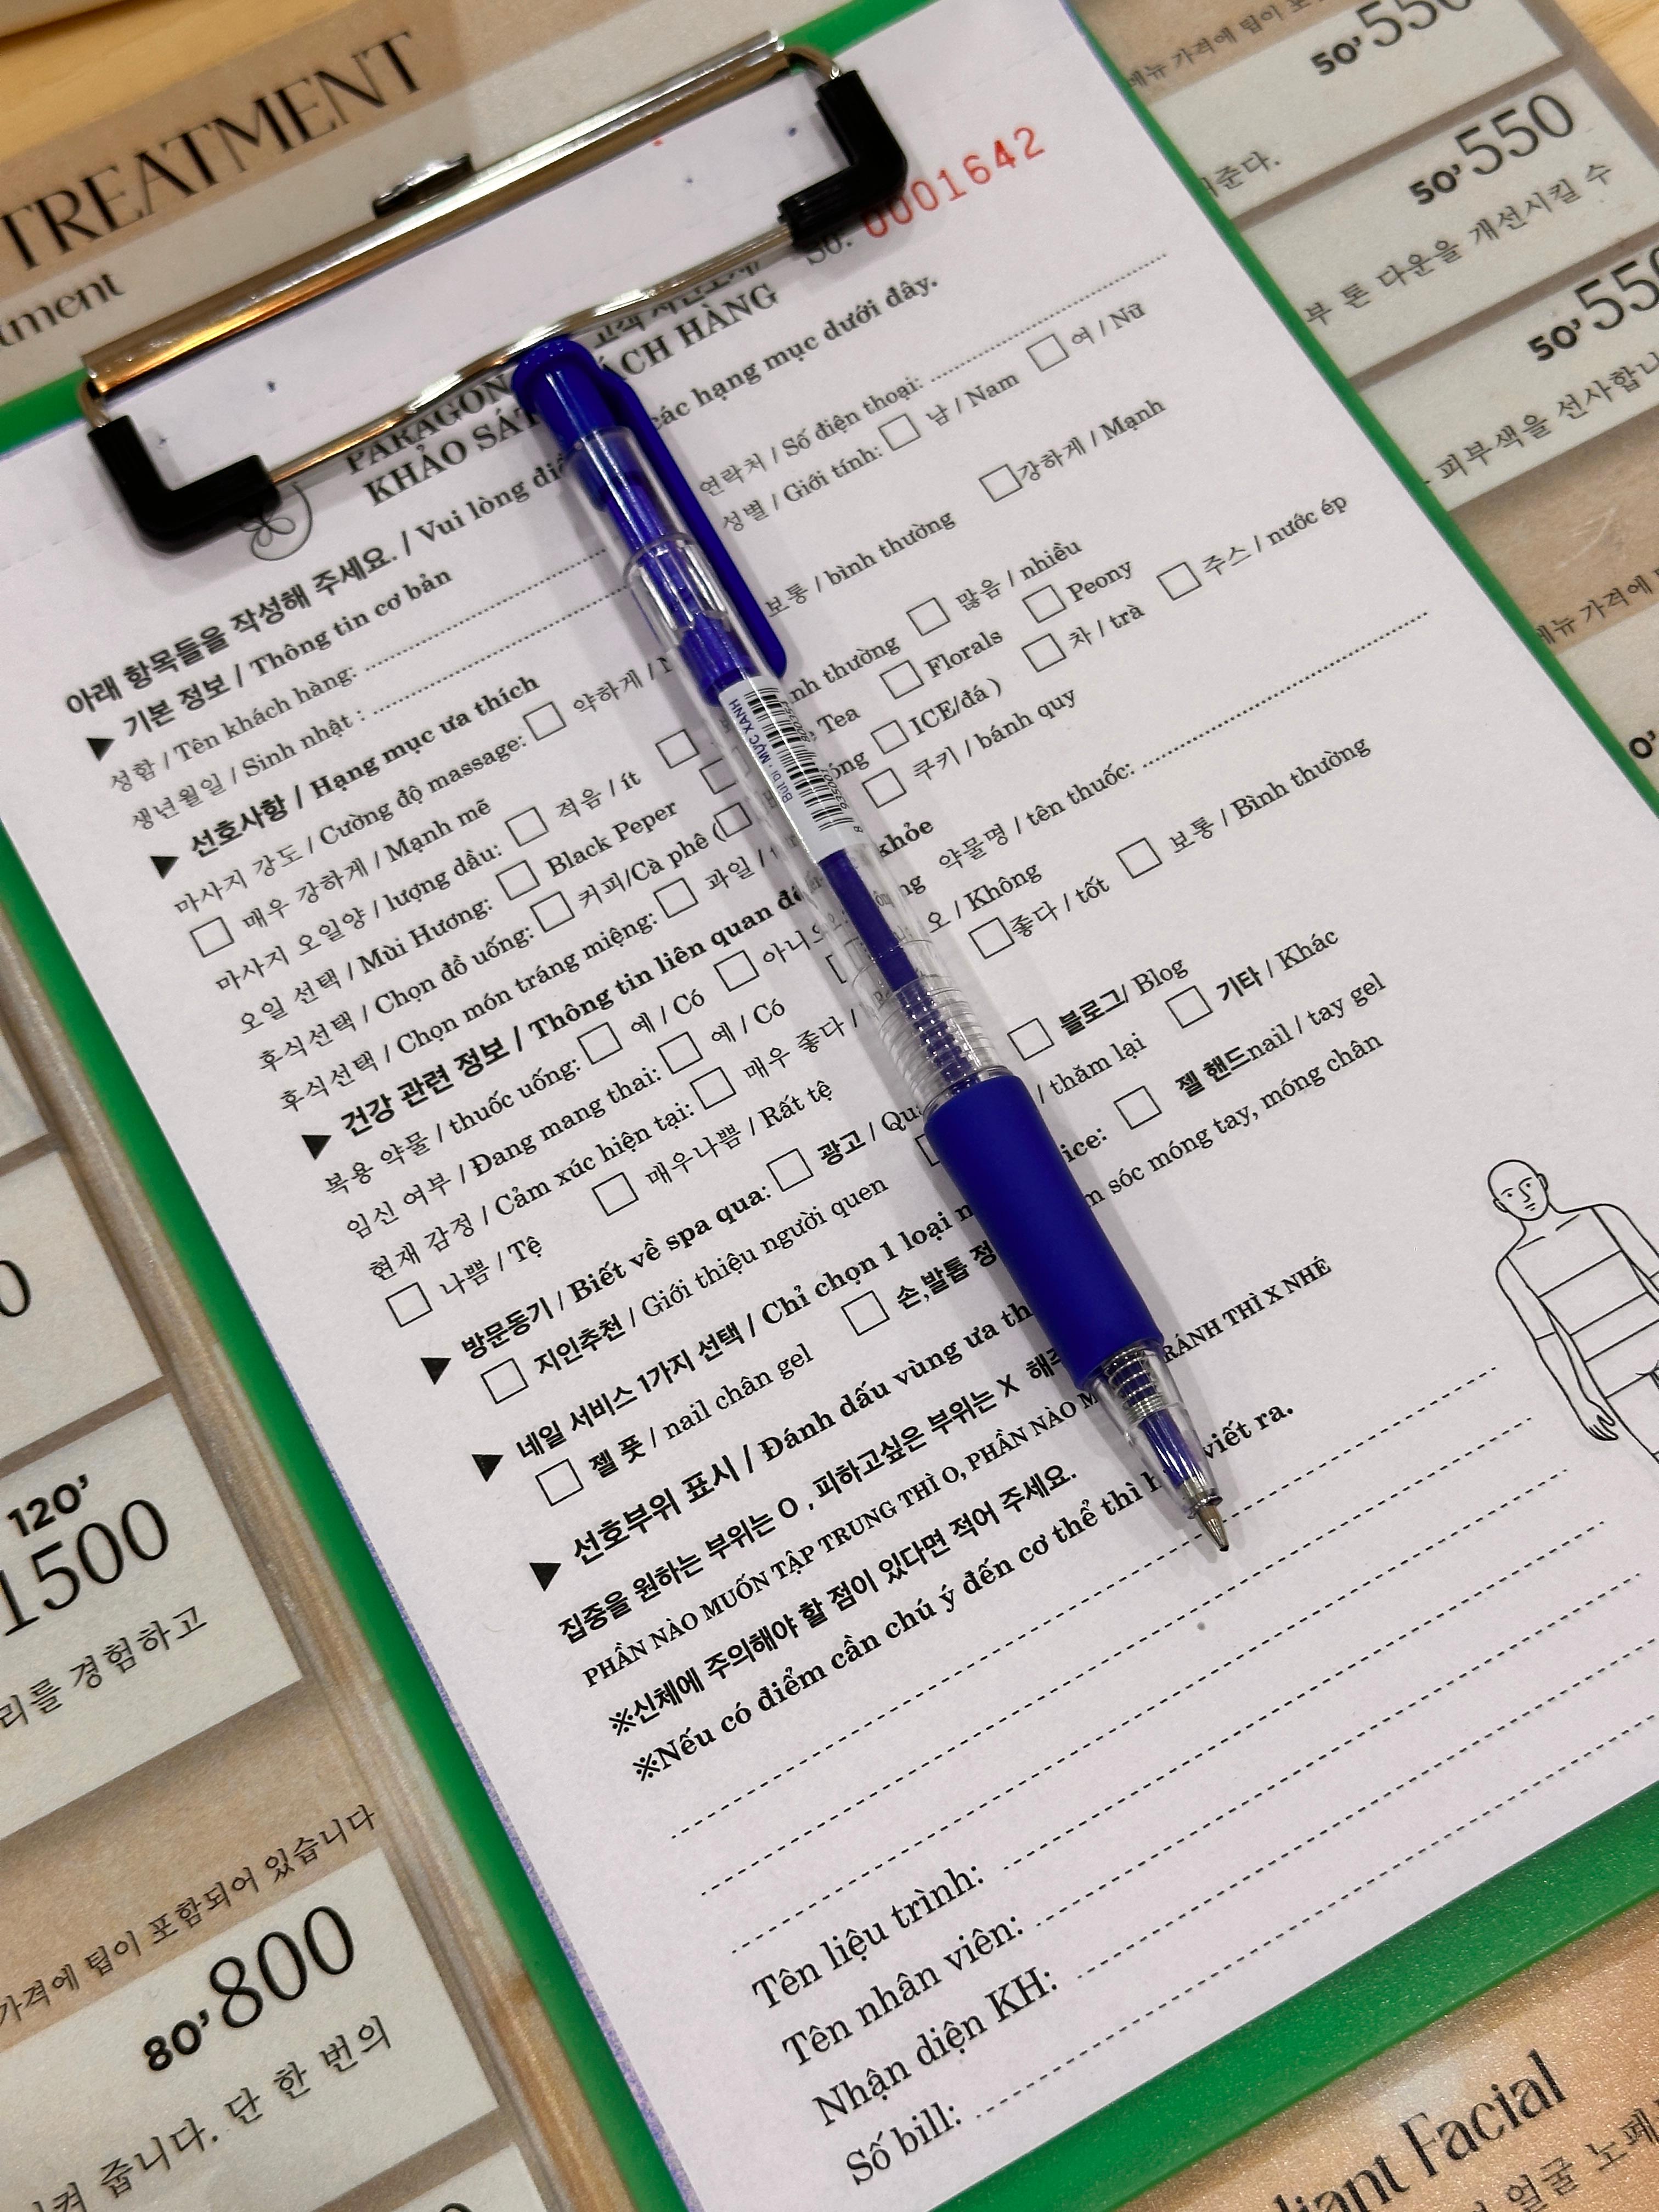 TREATMENT
tment
메뉴 가격에 팁이
50' 550
여준다.
50' 550
부 톤 다운을 개선시킬 수
50' 550
피부색을 선사합니
메뉴 가격에
0'
0
120'
1500
리를 경험하고
가격에 팁이 포함되어 있습니다
80' 800
켜 줍니다. 단 한 번의
liant Facial
얼굴
Số: 0001642
고객
PARAGON
KHẢO SÁT ÁCH HÀNG
아래 항목들을 작성해 주세요. / Vui lòng các hạng mục dưới đây.
▶ 기본 정보 / Thông tin cơ bản
성함 / Tên khách hàng: 연락처 / Số điện thoại:
생년월일 / Sinh nhật : 성별 / Giới tính: □ 남 / Nam □ 여 / Nữ
▶ 선호사항 / Hạng mục ưa thích
마사지 강도 / Cường độ massage: □ 약하게 / 보통 / bình thường □ 강하게 / Mạnh
□ 매우 강하게 / Mạnh mẽ
마사지 오일양 / lượng dầu: □ 적음 / ít □ nh thường □ 많음 / nhiều
오일 선택 / Mùi Hương: □ Black Peper □ Tea □ Florals □ Peony
후식선택 / Chọn đồ uống: □ 커피/Cà phê (□ óng □ ICE/đá ) □ 차 / trà □ 주스 / nước ép
후식선택 / Chọn món tráng miệng: □ 과일 / □ 쿠키 / bánh quy
▶ 건강 관련 정보 / Thông tin liên quan khỏe
복용 약물 / thuốc uống: □ 예 / Có □ 아니오 ng 약물명 / tên thuốc:
임신 여부 / Đang mang thai: □ 예 / Có 오 / Không
현재 감정 / Cảm xúc hiện tại: □ 매우 좋다 / □ 좋다 / tốt □ 보통 / Bình thường
□ 나쁨 / Tệ □ 매우나쁨 / Rất tệ
▶ 방문동기 / Biết về spa qua: □ 광고 / □ 블로그/ Blog
□ 지인추천 / Giới thiệu người quen / thăm lại □ 기타 / Khác
▶ 네일 서비스 1가지 선택 / Chỉ chọn 1 loại ice: □ 젤 핸드nail / tay gel
□ 젤 풋 / nail chân gel □ 손,발톱 정 m sóc móng tay, móng chân
▶ 선호부위 표시 / Đánh dấu vùng ưa th
집중을 원하는 부위는 O , 피하고싶은 부위는 X 해주
PHẦN NÀO MUỐN TẬP TRUNG THÌ O, PHẦN NÀO RÁNH THÌ X NHÉ
※신체에 주의해야 할 점이 있다면 적어 주세요.
※Nếu có điểm cần chú ý đến cơ thể thì viết ra.
Tên liệu trình:
Tên nhân viên:
Nhận diện KH:
Số bill:
Bút bi - MỰC XANH